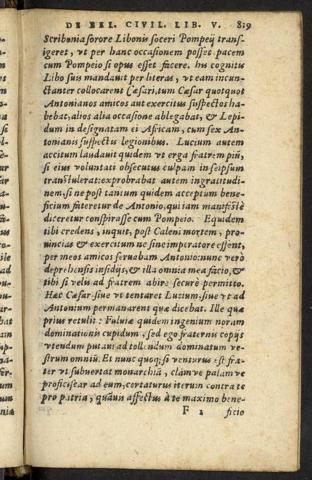 DE BEL. CIVIL. LIB. V. 819
Scribonia sorore Libonis soceri Pompeij trans-
igeret, vt per hanc occasionem posset pacem
cum Pompeio si opus esset facere. his cognitis
Libo suis mandauit per literas, vt eam incun-
ctanter collocarent Cæsari, tum Cæsar quotquot
Antonianos amicos aut exercitus suspectos ha-
bebat, alios alia occasione ablegabat, & Lepi-
dum in designatam ei Africam, cum sex An-
tonianis suspectis legionibus. Lucium autem
accitum laudauit quidem vt erga fratrem piũ,
si eius voluntati obsecutus culpam in seipsum
transtulerat: exprobrabat autem ingratitudi-
nem, si ne post tantum quidem acceptum bene-
ficium fateretur de Antonio, qui iam manifestè
diceretur conspirasse cum Pompeio. Equidem
tibi credens, inquit, post Caleni mortem, pro-
uincias & exercitum ne sine imperatore essent,
per meos amicos seruabam Antonio: nunc verò
deprehensis insidijs, & illa omnia mea facio, &
tibi si velis ad fratrem abire securè permitto.
Hæc Cæsar siue vt tentaret Lucium, siue vt ad
Antonium permanarent quæ dicebat. Ille quæ
prius retulit: Fuluiæ quidem ingenium noram
dominationis cupidum, sed ego fraternis copijs
vtendum putaui ad tollendum dominatum ve-
strum omniũ: Et nunc quoq; si venturus est fra-
ter vt subuertat monarchiã, clàm ve palàm ve
proficiscar ad eum, certaturus iterum contra te
pro patria, quãuis affectus à te maximo bene-
F 2 ficio